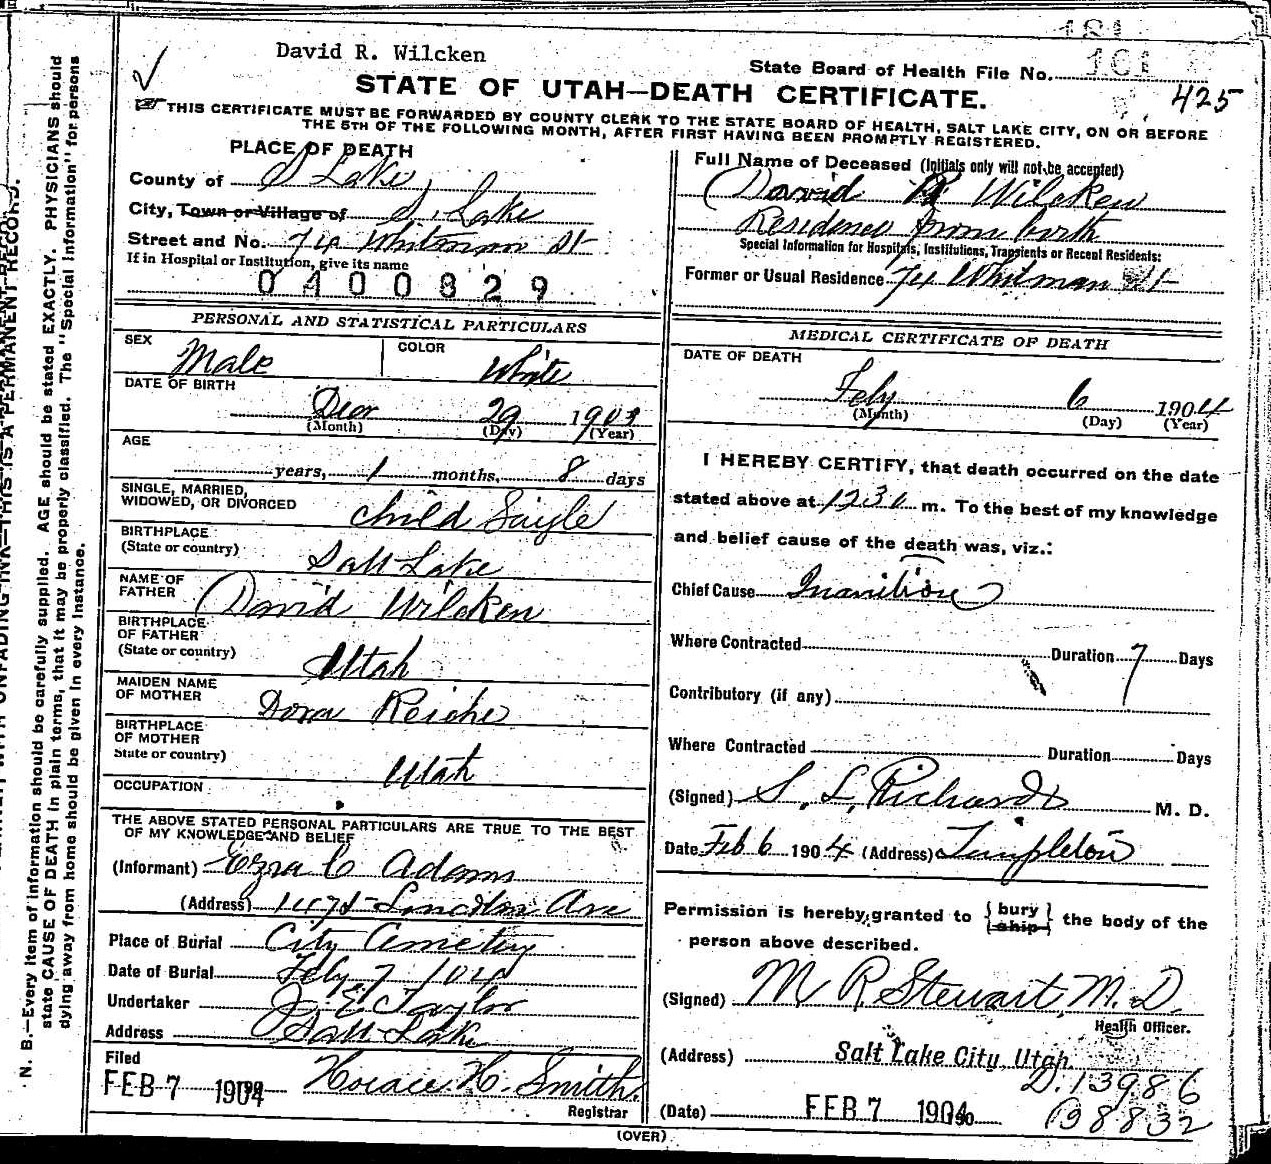 David R. Wilcken
State Board of Health File No. 161
425
STATE OF UTAH—DEATH CERTIFICATE.
THIS CERTIFICATE MUST BE FORWARDED BY COUNTY CLERK TO THE STATE BOARD OF HEALTH, SALT LAKE CITY, ON OR BEFORE
THE 5TH OF THE FOLLOWING MONTH, AFTER FIRST HAVING BEEN PROMPTLY REGISTERED.
PLACE OF DEATH
County of S Lake
City, Town or Village of S. Lake
Street and No. 74 Whitman St
If in Hospital or Institution, give its name
0400829
Full Name of Deceased (Initials only will not be accepted)
David R Wilcken
Residence from birth
Special Information for Hospitals, Institutions, Transients or Recent Residents:
Former or Usual Residence 74 Whitman St
PERSONAL AND STATISTICAL PARTICULARS
SEX Male COLOR White
DATE OF BIRTH
Decr 29 1903
(Month) (Day) (Year)
AGE
years, 1 months, 8 days
SINGLE, MARRIED,
WIDOWED, OR DIVORCED child Single
BIRTHPLACE
(State or country) Salt Lake
NAME OF
FATHER David Wilcken
BIRTHPLACE
OF FATHER
(State or country) Utah
MAIDEN NAME
OF MOTHER Dora Reiche
BIRTHPLACE
OF MOTHER
State or country) Utah
OCCUPATION
THE ABOVE STATED PERSONAL PARTICULARS ARE TRUE TO THE BEST
OF MY KNOWLEDGE AND BELIEF
(Informant) Ezra C Adams
(Address) 1475 Lincoln Ave
Place of Burial City Cemetery
Date of Burial Feby 7 1904
Undertaker J. E Taylor
Address Salt Lake
Filed
FEB 7 1904 Horace H. Smith
Registrar
MEDICAL CERTIFICATE OF DEATH
DATE OF DEATH
Feby 6 1904
(Month) (Day) (Year)
I HEREBY CERTIFY, that death occurred on the date
stated above at 1230 m. To the best of my knowledge
and belief cause of the death was, viz.:
Chief Cause Inanition
Where Contracted Duration 7 Days
Contributory (if any)
Where Contracted Duration Days
(Signed) S. L. Richards M. D.
Date Feb 6 1904 (Address) Templeton
Permission is hereby granted to { bury } the body of the
{ ship }
person above described.
(Signed) M R Stewart, M. D.
Health Officer.
(Address) Salt Lake City, Utah.
D. 13986
(Date) FEB 7 1904
B8832
(OVER)
N. B.—Every item of information should be carefully supplied. AGE should be stated EXACTLY. PHYSICIANS should
state CAUSE OF DEATH in plain terms, that it may be properly classified. The "Special Information" for persons
dying away from home should be given in every instance.
UNFADING INK—THIS IS A PERMANENT RECORD.